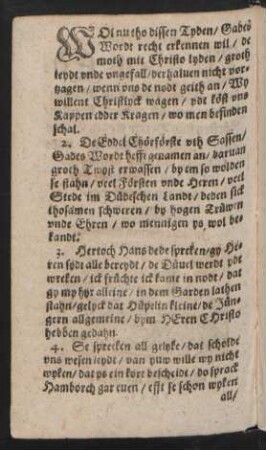 WOl nu tho dissen Tyden / Gades
Wordt recht erkennen wil / de
moth mit Christo lyden / groth
leydt vnde vngefall / derhaluen nicht vor-
tzagen / wenn vns de nodt geith an / Wy
willent Christlyck wagen / ydt köst vns
Kappen edder Kragen / wo men befinden
schal.
2. De Eddel Chörförste vth Sassen /
Gades Wordt hefft genamen an / daruan
groth Twyst erwassen / by em so wolden
se stahn / veel Försten vnde Heren / veel
Stede im Düdeschen Landt / deden sick
thosamen schweren / by hogen Trüwen
vnde Ehren / wo mennigen ys wol be-
kandt.
3. Hertoch Hans dede spreken / gy Hë-
ren sydt alle bereydt / de Düuel werdt ydt
wreken / ick früchte ick kame in nodt / dat
gy my hyr alleine / in dem Garden lathen
stahn / gelyck dat Hüpelin kleine / de Jün-
gern allgemeine / bym HEren CHristo
hebben gedahn.
4. Se spreken all gelyke / dat scholde
vns wesen leydt / van yuw wille wy nicht
wyken / dat ys ein kort bescheidt / do sprack
Hamborch gar euen / efft se schon wyken
all /